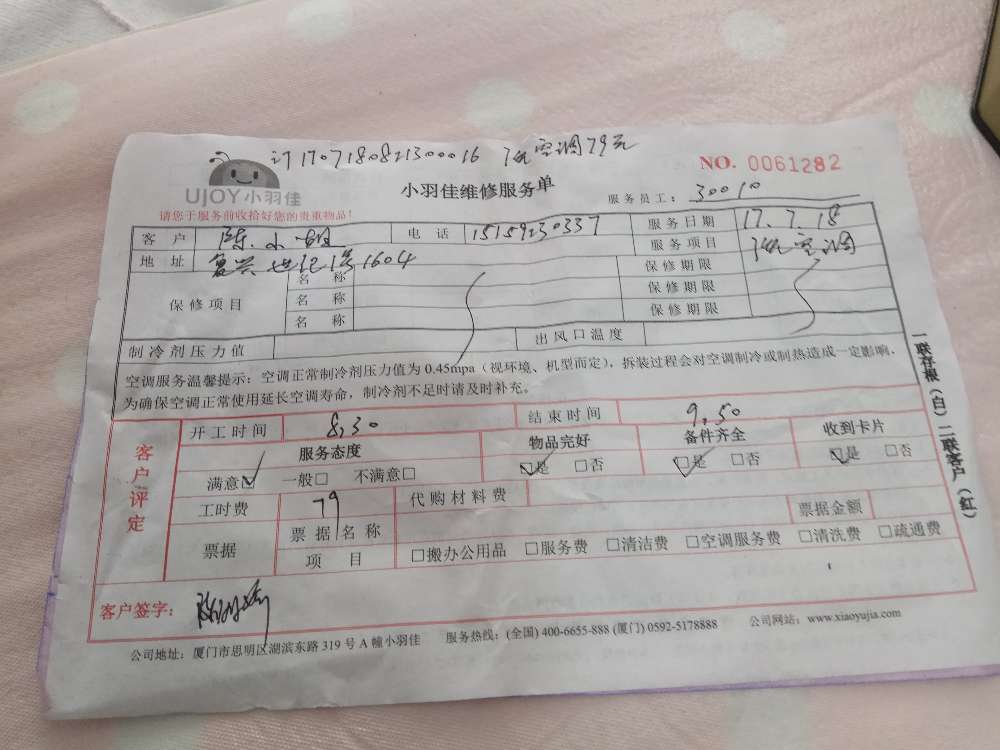 订170718082130016 洗空调79元
NO. 0061282
UJOY小羽佳
小羽佳维修服务单
服务员工：30010
请您于服务前收拾好您的贵重物品！
客户 陈小姐 电话 15159230337 服务日期 17.7.18
地址 复兴世纪 1604 服务项目 洗空调
保修项目 名称 保修期限
名称 保修期限
名称 保修期限
制冷剂压力值 出风口温度
空调服务温馨提示：空调正常制冷剂压力值为0.45mpa（视环境、机型而定），拆装过程会对空调制冷或制热造成一定影响，
为确保空调正常使用延长空调寿命，制冷剂不足时请及时补充。
客户评定
开工时间 8:30 结束时间 9:50
服务态度 物品完好 备件齐全 收到卡片
满意☑ 一般□ 不满意□ ☑是 □否 ☑是 □否 ☑是 □否
工时费 79 代购材料费
票据 票据名称 票据金额
项目 □搬办公用品 □服务费 □清洁费 □空调服务费 □清洗费 □疏通费
客户签字：
公司地址：厦门市思明区湖滨东路319号A幢小羽佳 服务热线：(全国) 400-6655-888 (厦门) 0592-5178888 公司网站：www.xiaoyujia.com
一联存根（白）二联客户（红）